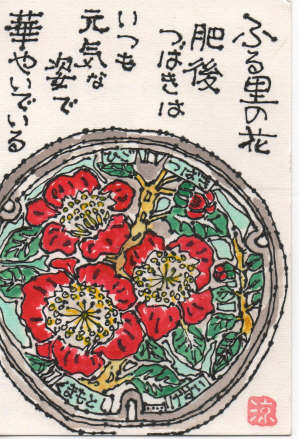 ふる里の花
肥後
つばきは
いつも
元気な
姿で
華やいでいる
ひご
つばき
くまもと
げすい
涼